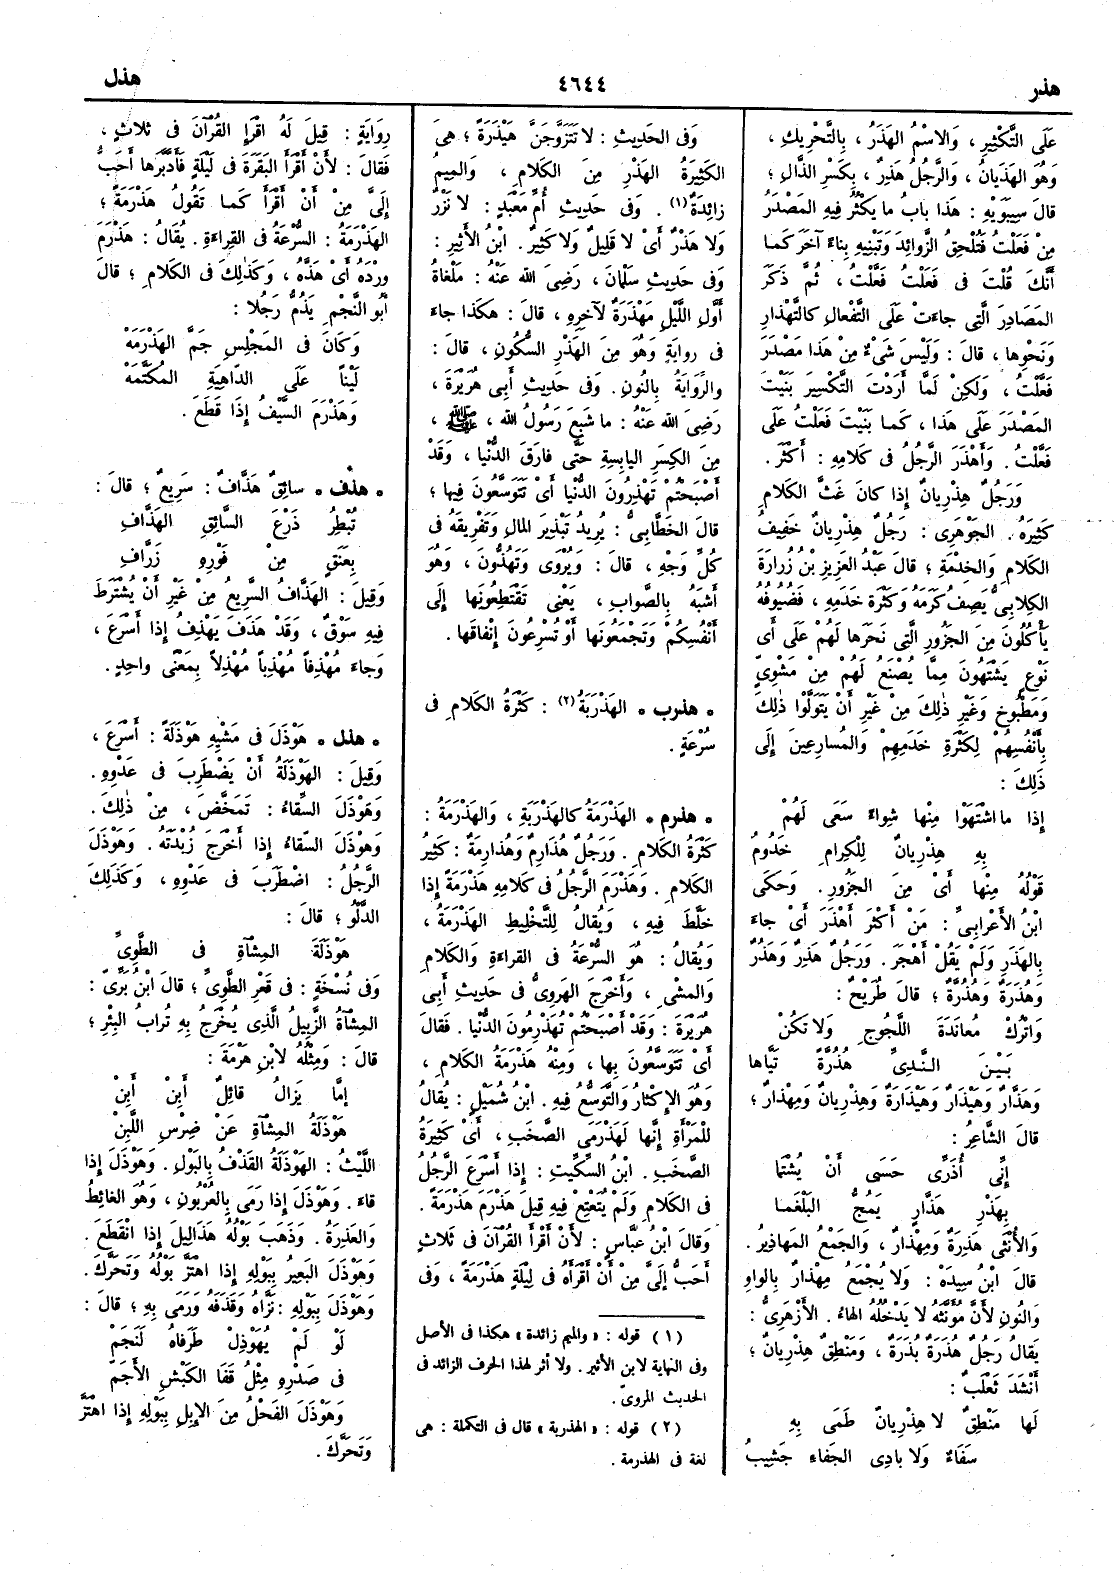 هذر
٤٦٤٤
هذل
عَلَى التَّكْثِيرِ ، وَالاسْمُ الهَذَرُ ، بِالتَّحْرِيكِ ،
وَهُوَ الهَذَيانُ ، وَالرَّجُلُ هَذِرٌ ، بِكَسْرِ الذَّالِ ؛
قالَ سِيبَوَيْهِ : هَذا بابُ ما يَكْثُرُ فِيهِ المَصْدَرُ
مِنْ فَعَلْتُ فَتُلْحِقُ الزَّوائِدَ وَتَبْنِيهِ بِناءً آخَرَ كَما
أَنَّكَ قُلْتَ فى فَعَلْتُ فَعَّلْتُ ، ثُمَّ ذَكَرَ
المَصادِرَ الَّتِى جاءَتْ عَلَى التَّفْعالِ كالتَّهْذارِ
وَنَحْوِها ، قالَ : وَلَيْسَ شَىْءٌ مِنْ هَذا مَصْدَرَ
فَعَّلْتُ ، وَلَكِنْ لَمَّا أَرَدْتَ التَّكْسِيرَ بَنَيْتَ
المَصْدَرَ عَلَى هَذا ، كَما بَنَيْتَ فَعَلْتُ عَلَى
فَعَّلْتُ . وَأَهْذَرَ الرَّجُلُ فى كَلامِهِ : أَكْثَرَ .
وَرَجُلٌ هِذْرِيانٌ إِذا كانَ غَثَّ الكَلامِ
كَثِيرَهُ . الجَوْهَرِى : رَجُلٌ هِذْرِيانٌ خَفِيفُ
الكَلامِ وَالخِدْمَةِ ؛ قالَ عَبْدُ العَزِيزِ بْنُ زُرارَةَ
الكِلابِىُّ يَصِفُ كَرَمَهُ وَكَثْرَةَ خَدَمِهِ ، فَضُيُوفُهُ
يَأْكُلُونَ مِنَ الجَزُورِ الَّتِى نَحَرَها لَهُمْ عَلَى أَى
نَوْعٍ يَشْتَهُونَ مِمَّا يُصْنَعُ لَهُمْ مِنْ مَشْوِىٍّ
وَمَطْبُوخٍ وَغَيْرِ ذٰلِكَ مِنْ غَيْرِ أَنْ يَتَوَلَّوْا ذٰلِكَ
بِأَنْفُسِهِمْ لِكَثْرَةِ خَدَمِهِمْ وَالمُسارِعِينَ إِلَى
ذَلِكَ :
إِذا ما اشْتَهَوْا مِنْها شِواءً سَعَى لَهُمْ
بِهِ هِذْرِيانٌ لِلْكِرامِ خَدُومُ
قَوْلُهُ مِنْها أَىْ مِنَ الجَزُورِ . وَحَكَى
ابْنُ الأَعْرابِىِّ : مَنْ أَكْثَرَ أَهْذَرَ أَىْ جاءَ
بِالهَذَرِ وَلَمْ يَقُلْ أَهْجَرَ . وَرَجُلٌ هَذِرٌ وَهَذُرٌ
وَهُذَرَةٌ وَهُذُرَّةٌ ؛ قالَ طُرَيْحٌ :
وَاتْرُكْ مُعانَدَةَ اللَّجُوجِ وَلا تَكُنْ
بَيْنَ النَّدِىِّ هُذُرَّةً تَيَّاها
وَهَذَّارٌ وَهَيْذَارٌ وَهَيْذَارَةٌ وَهِذْرِيانٌ وَمِهْذارٌ ؛
قالَ الشَّاعِرُ :
إِنِّى أُذَرِّى حَسَبِى أَنْ يُشْتَما
بِهَذْرِ هَذَّارٍ يَمُجُّ البَلْغَما
وَالأُنْثَى هَذِرَةٌ وَمِهْذارٌ ، وَالجَمْعُ المَهاذِيرُ .
قالَ ابْنُ سِيدَهْ : وَلا يُجْمَعُ مِهْذارٌ بِالواوِ
وَالنُّونِ لأَنَّ مُؤَنَّثَهُ لا يَدْخُلُهُ الهاءُ . الأَزْهَرِىُّ :
يقالُ رَجُلٌ هُذَرَةٌ بُذَرَةٌ ، وَمَنْطِقٌ هِذْرِيانٌ ؛
أَنْشَدَ ثَعْلَبٌ :
لَها مَنْطِقٌ لا هِذْرِيانٌ طَمَى بِهِ
سَفَاءٌ وَلا بادِى الجَفاءِ جَشِيبُ
وَفِى الحَدِيثِ : لا تَتَزَوَّجَنَّ هَيْذَرَةً ؛ هِىَ
الكَثِيرَةُ الهَذْرِ مِنَ الكَلامِ ، وَالمِيمُ
زائِدَةٌ (١) . وَفى حَدِيثِ أُمِّ مَعْبَدٍ : لا نَزْرٌ
وَلا هَذْرٌ أَىْ لا قَلِيلٌ وَلا كَثِيرٌ . ابْنُ الأَثِيرِ :
وَفى حَدِيثِ سَلْمانَ ، رَضِىَ الله عَنْهُ : مَلْغاةُ
أَوَّلِ اللَّيْلِ مَهْذَرَةٌ لآخِرِهِ ، قالَ : هكَذا جاءَ
فى رِوايَةٍ وَهُوَ مِنَ الهَذْرِ السُّكُونِ ، قالَ :
والرِّوايَةُ بِالنُّونِ . وَفى حَدِيثِ أَبِى هُرَيْرَةَ ،
رَضِىَ الله عَنْهُ : ما شَبِعَ رَسُولُ الله ، ﷺ ،
مِنَ الكِسَرِ اليابِسَةِ حَتَّى فارَقَ الدُّنْيا ، وَقَدْ
أَصْبَحْتُمْ تَهْذِرُونَ الدُّنْيا أَىْ تَتَوَسَّعُونَ فِيها ؛
قالَ الخَطَّابِىُّ : يُرِيدُ تَبْذِيرَ المالِ وَتَفْرِيقَهُ فى
كُلِّ وَجْهٍ ، قالَ : وَيُرْوَى وَتَهُذُّونَ ، وَهُوَ
أَشْبَهُ بِالصَّوابِ ، يَعْنِى تَقْتَطِعُونَها إِلَى
أَنْفُسِكُمْ وَتَجْمَعُونَها أَوْ تُسْرِعُونَ إِنْفاقَها .
• هذرب • الهَذْرَبَةُ (٢) : كَثْرَةُ الكَلامِ فى
سُرْعَةٍ .
• هذرم • الهَذْرَمَةُ كالهَذْرَبَةِ ، وَالهَذْرَمَةُ :
كَثْرَةُ الكَلامِ . وَرَجُلٌ هُذَارِمٌ وَهُذارِمَةٌ : كَثِيرُ
الكَلامِ . وَهَذْرَمَ الرَّجُلُ فى كَلامِهِ هَذْرَمَةً إِذا
خَلَّطَ فِيهِ ، وَيُقالُ لِلتَّخْلِيطِ الهَذْرَمَةُ ،
وَيُقالُ : هُوَ السُّرْعَةُ فى القراءَةِ وَالكَلامِ
وَالمَشْىِ ، وَأَخْرَجَ الهَرَوِىُّ فى حَدِيثِ أَبِى
هُرَيْرَةَ : وَقَدْ أَصْبَحْتُمْ تُهَذْرِمُونَ الدُّنْيا . فَقالَ
أَىْ تَتَوَسَّعُونَ بِها ، وَمِنْهُ هَذْرَمَةُ الكَلامِ ،
وَهُوَ الإِكْثارُ وَالتَّوَسُّعُ فِيهِ . ابْنُ شُمَيْلٍ : يُقالُ
لِلْمَرْأَةِ إِنَّها لَهَذْرَمَى الصَّخَبِ ، أَىْ كَثِيرَةُ
الصَّخَبِ . ابْنُ السِّكِّيتِ : إِذا أَسْرَعَ الرَّجُلُ
فى الكَلامِ وَلَمْ يُتَعْتِعْ فِيهِ قِيلَ هَذْرَمَ هَذْرَمَةً .
وَقالَ ابْنُ عَبَّاسٍ : لأَنْ أَقْرَأَ القُرْآنَ فى ثَلاثٍ
أَحَبُّ إِلَىَّ مِنْ أَنْ أَقْرَأَهُ فى لَيْلَةٍ هَذْرَمَةً ، وَفى
(١) قوله : « والميم زائدة » هكذا فى الأصل
وفى النهاية لابن الأثير . ولا أثر لهذا الحرف الزائد فى
الحديث المروىّ .
(٢) قوله : « الهذربة » قال فى التكملة : هى
لغة فى الهذرمة .
رِوايَةٍ : قِيلَ لَهُ اقْرَإِ القُرْآنَ فى ثَلاثٍ ،
فَقالَ : لأَنْ أَقْرَأَ البَقَرَةَ فى لَيْلَةٍ فَأَدَّبَّرَها أَحَبُّ
إِلَىَّ مِنْ أَنْ أَقْرَأَ كَما تَقُولُ هَذْرَمَةً ؛
الهَذْرَمَةُ : السُّرْعَةُ فى القِراءَةِ . يُقالُ : هَذْرَمَ
وِرْدَهُ أَىْ هَذَّهُ ، وَكَذٰلِكَ فى الكَلامِ ؛ قالَ
أَبُو النَّجْمِ يَذُمُّ رَجُلاً :
وَكَانَ فى المَجْلِسِ جَمَّ الهَذْرَمَهْ
لَيْثاً عَلَى الدَّاهِيَةِ المُكَتَّمَهْ
وَهَذْرَمَ السَّيْفُ إِذَا قَطَعَ .
• هذف • سائِقٌ هَذَّافٌ : سَرِيعٌ ؛ قالَ :
تُبْطِرُ ذَرْعَ السَّائِقِ الهَذَّافِ
بِعَنَقٍ مِنْ فَوْرِهِ زَرَّافِ
وَقِيلَ : الهَذَّافُ السَّرِيعُ مِنْ غَيْرِ أَنْ يُشْتَرَطَ
فِيهِ سَوْقٌ ، وَقَدْ هَذَفَ يَهْذِفُ إِذا أَسْرَعَ ،
وَجاءَ مُهْذِفاً مُهْذِباً مُهْذِلاً بِمَعْنًى واحِدٍ .
• هذل • هَوْذَلَ فى مَشْيِهِ هَوْذَلَةً : أَسْرَعَ ،
وَقِيلَ : الهَوْذَلَةُ أَنْ يَضْطَرِبَ فى عَدْوِهِ .
وَهَوْذَلَ السِّقاءُ : تَمَخَّضَ ، مِنْ ذٰلِكَ .
وَهَوْذَلَ السِّقاءُ إِذا أَخْرَجَ زُبْدَتَهُ . وَهَوْذَلَ
الرَّجُلُ : اضْطَرَبَ فى عَدْوِهِ ، وَكَذَلِكَ
الدَّلْوُ ؛ قالَ :
هَوْذَلَةَ المِشْآةِ فى الطَّوِىِّ
وَفى نُسْخَةٍ : فى قَعْرِ الطَّوِىِّ ؛ قالَ ابْنُ بَرِّىّ :
المِشْآةُ الزَّبِيلُ الَّذِى يُخْرَجُ بِهِ تُرابُ البِئْرِ ؛
قالَ : وَمِثْلُهُ لابْنِ هَرْمَةَ :
إِمَّا يَزالُ قائِلٌ أَبِنْ أَبِنْ
هَوْذَلَةُ المِشْآةِ عَنْ ضِرْسِ اللَّبِنْ
اللَّيْثُ : الهَوْذَلَةُ القَذْفُ بِالبَوْلِ . وَهَوْذَلَ إِذا
قاءَ . وَهَوْذَلَ إِذا رَمَى بِالعُرْبُونِ ، وَهُوَ الغائِطُ
وَالعَذِرَةُ . وَذَهَبَ بَوْلُهُ هَذالِيلَ إِذا انْقَطَعَ .
وَهَوْذَلَ البَعِيرُ بِبَوْلِهِ إِذا اهْتَزَّ بَوْلُهُ وَتَحَرَّكَ .
وَهَوْذَلَ بِبَوْلِهِ : نَزَّاهُ وَقَذَفَهُ وَرَمَى بِهِ ؛ قالَ :
لَوْ لَمْ يُهَوْذِلْ طَرَفاهُ لَنَجَمْ
فى صَدْرِهِ مِثْلُ قَفَا الكَبْشِ الأَجَمّ
وَهَوْذَلَ الفَحْلُ مِنَ الإِبِلِ بِبَوْلِهِ إِذا اهْتَزَّ
وَتَحَرَّكَ .